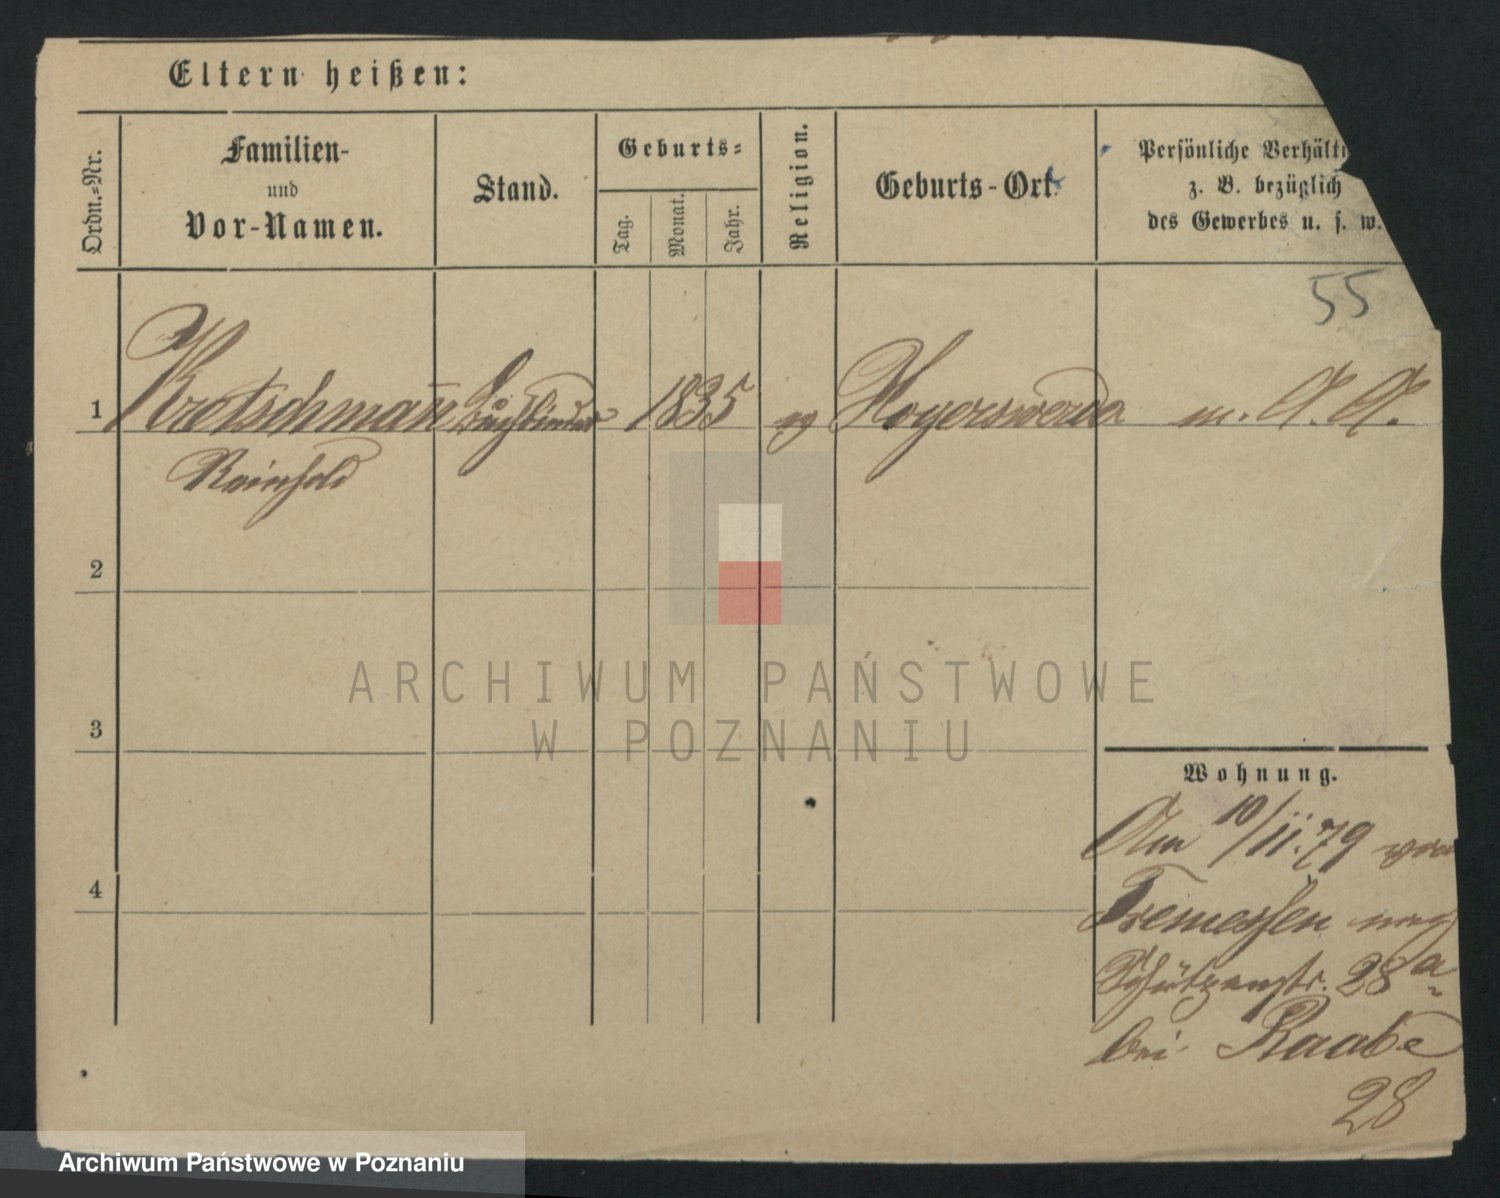 Eltern heißen:
Ordn.-Nr.
Familien-
und
Vor-Namen.
Stand.
Geburts-
Tag.
Monat.
Jahr.
Religion.
Geburts-Ort.
Persönliche Verhält
z. B. bezüglich
des Gewerbes u. s. w.
55
1 Kretschmañ Buchbinder 1835 eg Hoyerswerda m. A. A.
Reinhold
2
3
4
Wohnung.
Am 10/11.79 von
Tremessen nach
Schützenstr. 28 a
bei Raabe
28
ARCHIWUM PAŃSTWOWE
W POZNANIU
Archiwum Państwowe w Poznaniu